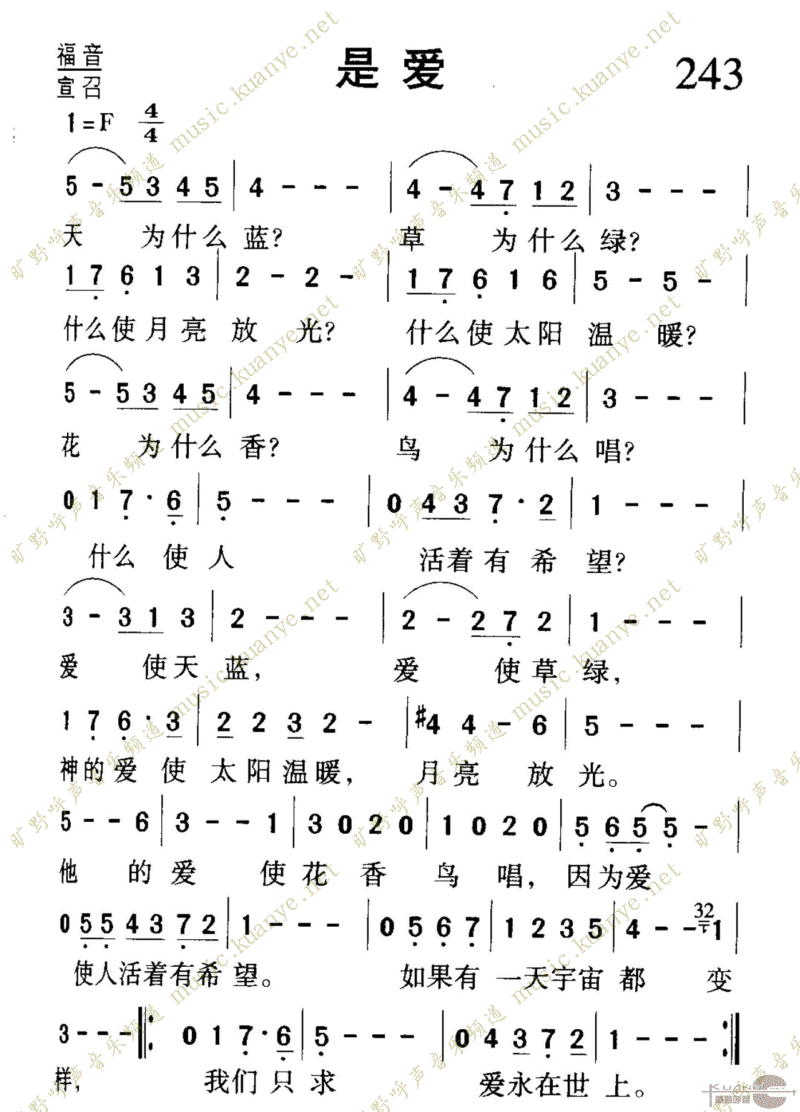 福音
宣召
是爱
243
1=F 4/4
5 - 5 3 4 5 | 4 - - - | 4 - 4 7 1 2 | 3 - - - |
天 为什么蓝? 草 为什么绿?
1 7 6 1 3 | 2 - 2 - | 1 7 6 1 6 | 5 - 5 - |
什么使月亮放光? 什么使太阳温暖?
5 - 5 3 4 5 | 4 - - - | 4 - 4 7 1 2 | 3 - - - |
花 为什么香? 鸟 为什么唱?
0 1 7 · 6 | 5 - - - | 0 4 3 7 · 2 | 1 - - - |
什么使人 活着有希望?
3 - 3 1 3 | 2 - - - | 2 - 2 7 2 | 1 - - - |
爱 使天蓝, 爱 使草绿,
1 7 6 · 3 | 2 2 3 2 - | #4 4 - 6 | 5 - - - |
神的爱使太阳温暖, 月亮放光。
5 - - 6 | 3 - - 1 | 3 0 2 0 | 1 0 2 0 | 5 6 5 5 - |
他的爱使花香鸟唱, 因为爱
0 5 5 4 3 7 2 | 1 - - - | 0 5 6 7 | 1 2 3 5 | 4 - - 32 1 |
使人活着有希望。 如果有一天宇宙都变
3 - - - ‖: 0 1 7 · 6 | 5 - - - | 0 4 3 7 2 | 1 - - - :‖
样, 我们只求 爱永在世上。
旷野呼声音乐频道 music.kuanye.net
KUANYE